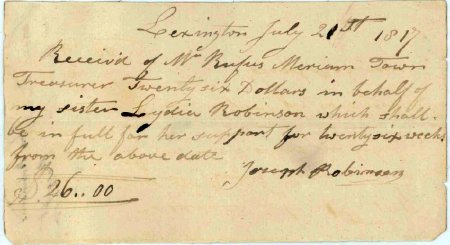 Lexington July 21st 1817
Receivd of Mr Rufus Merriam Town
Treasurer Twenty six Dollars in behalf of
my sister Lydia Robinson which shall
be in full for her support for twenty six weeks
from the above date
Joseph Robinson
$26..00